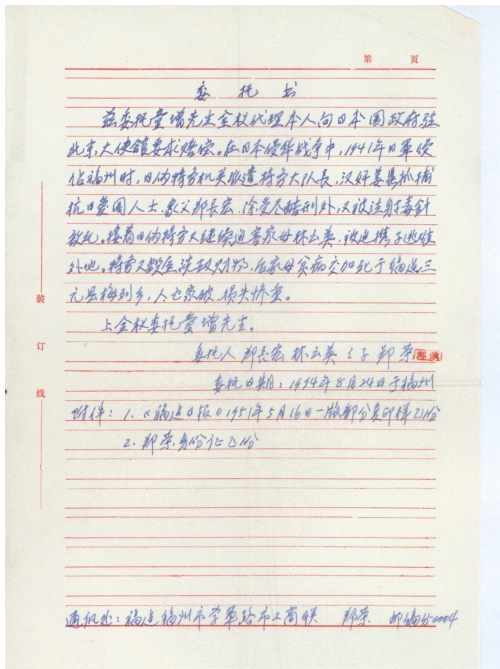 第 頁
委托书
兹委托童增先生全权代理本人向日本国政府驻
北京大使馆要求赔偿。在日本侵华战争中，1941年日军侵
占福州时，日伪特务机关派遣特务大队长，汉奸姜 抓捕
抗日爱国人士，家父郑长宏，除受尽酷刑外，又被注射毒针
致死。接着日伪特务又继续迫害家母林云英，被迫携子逃难
外地。特务又 财物，后家母贫病交加死于福建三
元县梅列乡，人亡家破，损失惨重。
上全权委托童增先生。
委托人 郑长宏 林云英之子 郑荣
委托日期：1994年8月24日于福州
附件：1.《福建日报》1951年5月16日一版部分复印样乙份
2.郑荣身份证乙份
装
订
线
通讯处：福建福州市学军路市工商联 郑荣 邮编350004